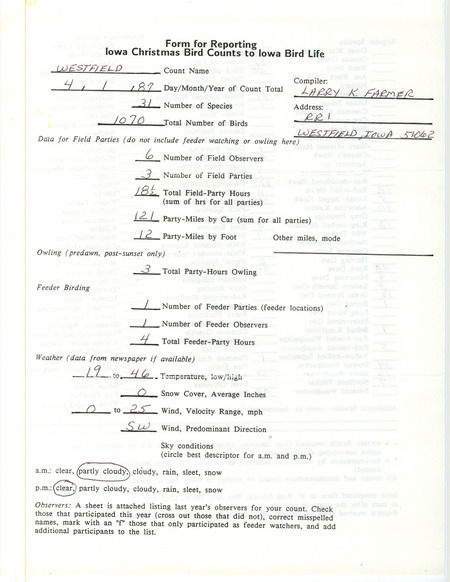 Form for Reporting
Iowa Christmas Bird Counts to Iowa Bird Life
WESTFIELD Count Name
4, 1, 87 Day/Month/Year of Count Total
Compiler:
LARRY K. FARMER
31 Number of Species
Address:
RR1
1070 Total Number of Birds
WESTFIELD, IOWA 51062
Data for Field Parties (do not include feeder watching or owling here)
6 Number of Field Observers
3 Number of Field Parties
18½ Total Field-Party Hours
(sum of hrs for all parties)
121 Party-Miles by Car (sum for all parties)
12 Party-Miles by Foot Other miles, mode
Owling (predawn, post-sunset only)
3 Total Party-Hours Owling
Feeder Birding
1 Number of Feeder Parties (feeder locations)
1 Number of Feeder Observers
4 Total Feeder-Party Hours
Weather (data from newspaper if available)
19 to 46 Temperature, low/high
0 Snow Cover, Average Inches
0 to 25 Wind, Velocity Range, mph
SW Wind, Predominant Direction
Sky conditions
(circle best descriptor for a.m. and p.m.)
a.m.: clear, partly cloudy, cloudy, rain, sleet, snow
p.m.: clear, partly cloudy, cloudy, rain, sleet, snow
Observers: A sheet is attached listing last year's observers for your count. Check
those that participated this year (cross out those that did not), correct misspelled
names, mark with an "f" those that only participated as feeder watchers, and add
additional participants to the list.